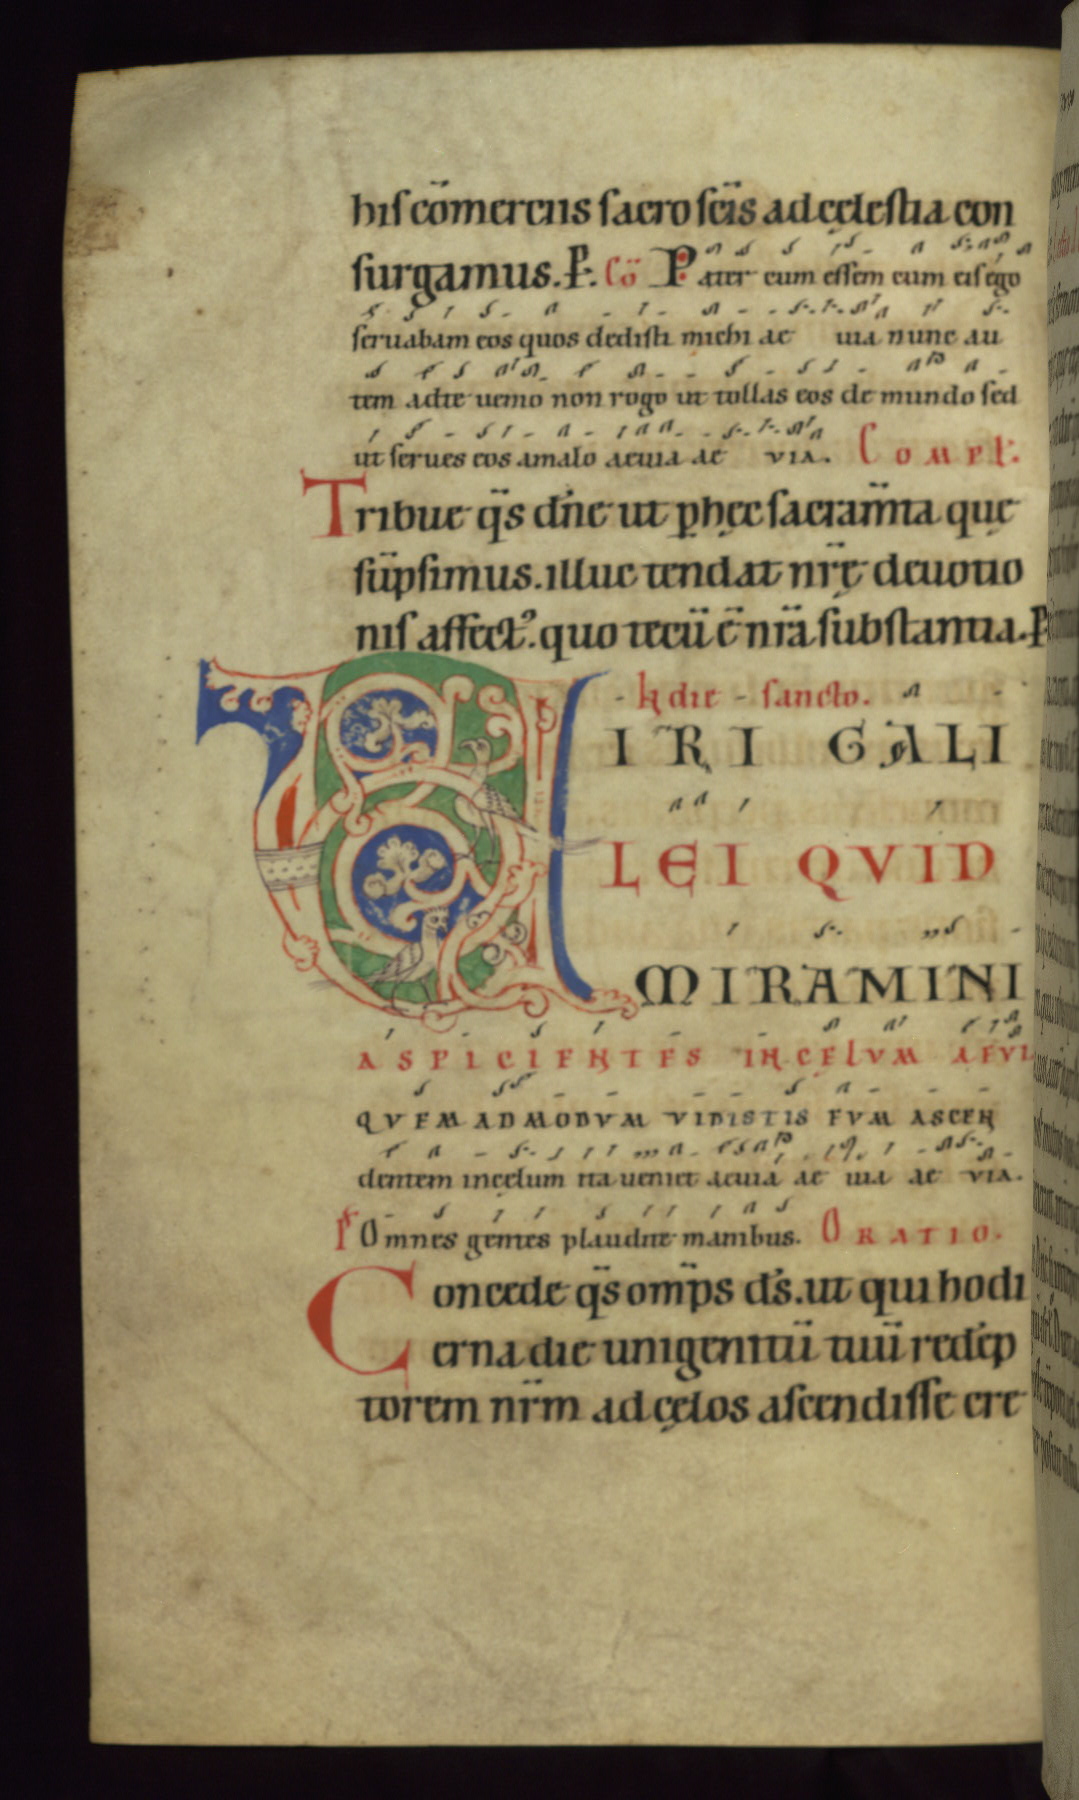 hiſ cōmerciis ſacro ſcīs ad cęleſtia con
ſurgamus. P. Cō Pater cum eſſem cum eiſ ego
ſeruabam eos quos dedisti michi ae uia nunc au
tem ad te uenio non rogo ut tollas eos de mundo ſed
ut ſerues eos a malo aeuia ae VIA. COMPL.
Tribue q̄s dn̄e ut p hęc ſacram̄ta quę
ſūpſimus. illuc tendat nr̄ę deuotio
niſ affect⁹. quo tecū ē nr̄a ſubſtantia. P
In die sancto.
VIRI GALI
LEI QVID
MIRAMINI
ASPICIENTES IN CELVM AEVI
QVEMADMODVM VIDISTIS EVM ASCEN
dentem in cęlum ita ueniet aeuia ae uia ae VIA.
P Omnes gentes plaudite manibus. ORATIO.
Concede q̄s omp̄s dſ̄. ut qui hodi
erna die unigenitū tuū redēp
torem nr̄m ad cęlos aſcendiſſe cre